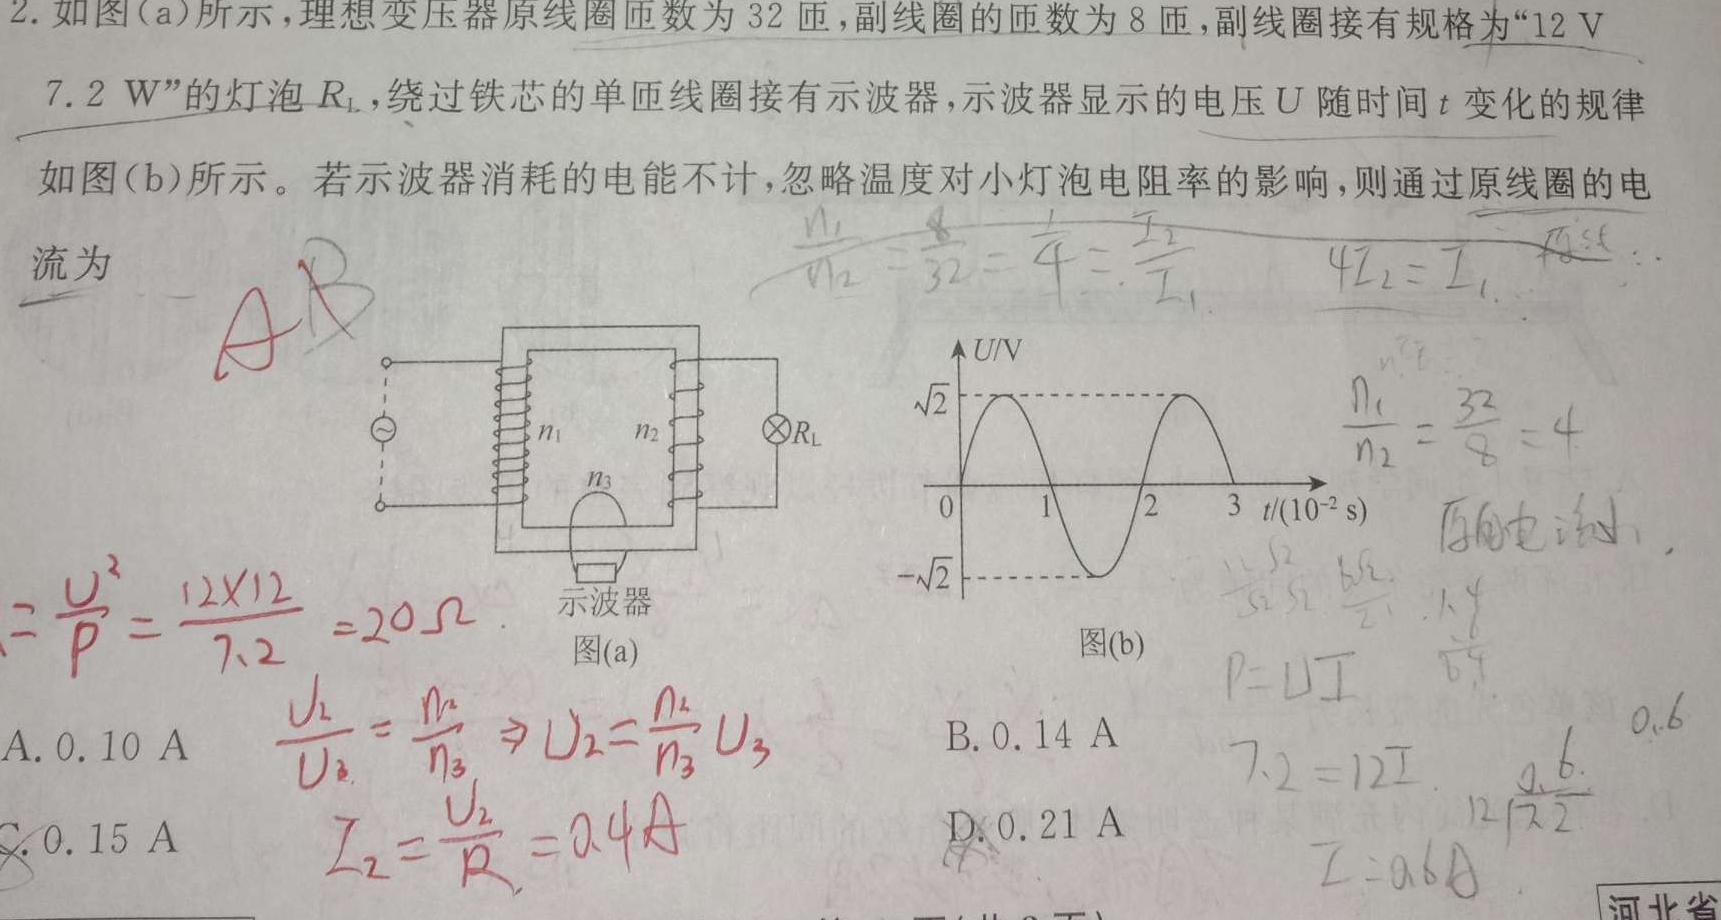 2. 如图(a)所示,理想变压器原线圈匝数为 32 匝,副线圈的匝数为 8 匝,副线圈接有规格为“12 V
7.2 W”的灯泡 R_L,绕过铁芯的单匝线圈接有示波器,示波器显示的电压 U 随时间 t 变化的规律
如图(b)所示。若示波器消耗的电能不计,忽略温度对小灯泡电阻率的影响,则通过原线圈的电
流为
n₁/n₂ = 8/32 = 1/4 = I₂/I₁
4I₂ = I₁
A B
n₁
n₂
R_L
n₃
示波器
图(a)
U/V
√2
0
1
2
3
t/(10⁻² s)
-√2
图(b)
n₁/n₂ = 32/8 = 4
= U²/P = 12×12/7.2 = 20Ω
P=UI
7.2=12I
0.6
12 7.2
0.6
I=0.6A
A. 0.10 A
U₂/U₃ = n₂/n₃ ⇒ U₂ = n₂/n₃ U₃
B. 0.14 A
I₂ = U₂/R = 0.4A
C. 0.15 A
D. 0.21 A
河北省